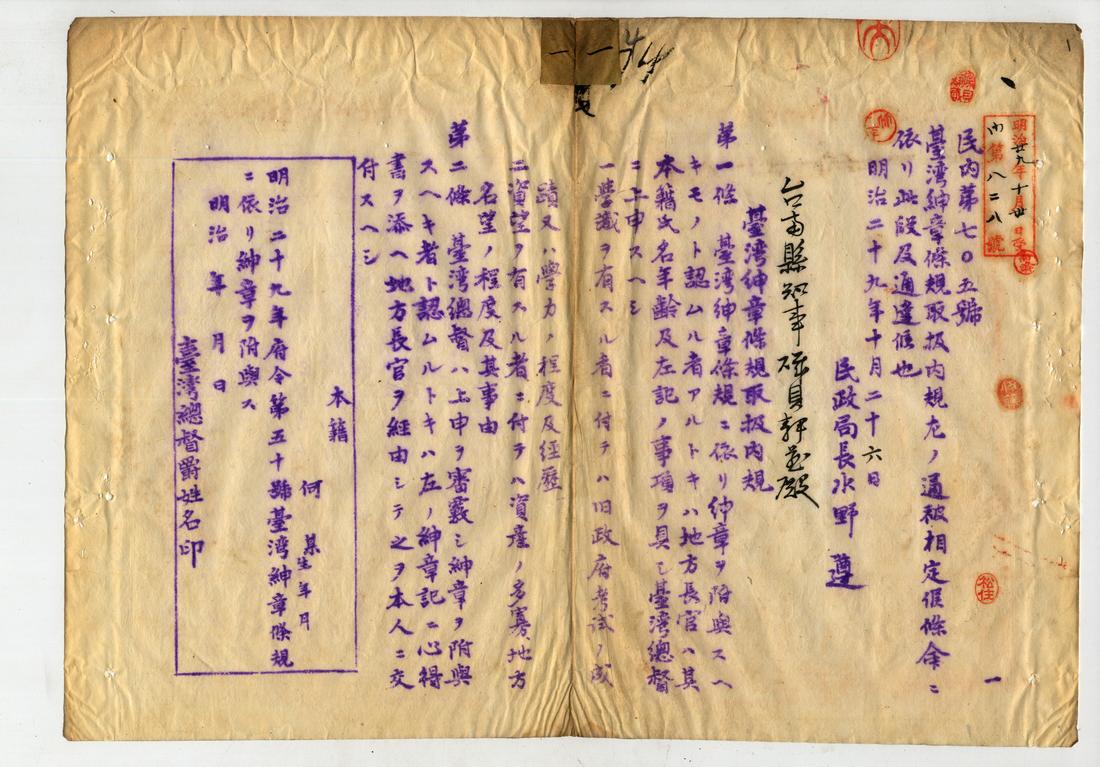 明治廿九年十月廿日
内第八二八號
民内第七〇五號
臺湾紳章條規取扱内規左ノ通被相定候條余ニ
依リ此段及通達候也
明治二十九年十月二十六日
民政局長水野 遵
台南縣知事磯貝静蔵殿
臺湾紳章條規取扱内規
第一條 臺湾紳章條規ニ依リ紳章ヲ附與スヘ
キモノト認ムル者アルトキハ地方長官ハ其
本籍氏名年齢及左記ノ事項ヲ具シ臺湾總督
ニ上申スヘシ
一學識ヲ有スル者ニ付テハ旧政府考試ノ成
蹟又ハ學力ノ程度及経歴
二資望ヲ有スル者ニ付テハ資産ノ多寡地方
名望ノ程度及其事由
第二條 臺湾總督ハ上申ヲ審覈シ紳章ヲ附與
スヘキ者ト認ムルトキハ左ノ紳章記ニ心得
書ヲ添ヘ地方長官ヲ経由シテ之ヲ本人ニ交
付スヘシ
本籍
何 某
生年月
明治二十九年府令第五十號臺湾紳章條規
ニ依リ紳章ヲ附與ス
明治 年 月 日
臺湾總督爵姓名印
松住
一